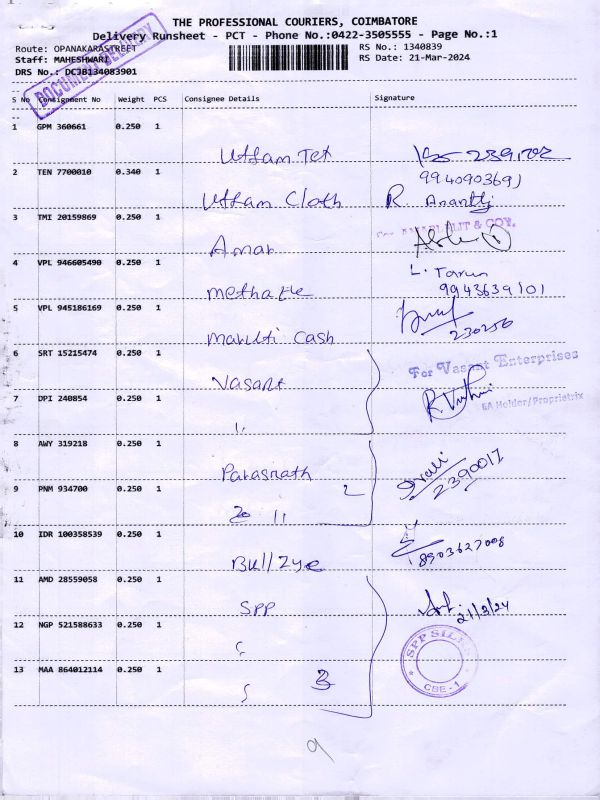 THE PROFESSIONAL COURIERS, COIMBATORE
Delivery Runsheet - PCT - Phone No.:0422-3505555 - Page No.:1
Route: OPANAKARASTREET
RS No.: 1340839
Staff: MAHESHWARI
RS Date: 21-Mar-2024
DRS No.: DCJB134083901
DOCUMENT DELIVERY
S No Consignment No Weight PCS Consignee Details Signature
1 GPM 360661 0.250 1
Uttam Tex
2391702
2 TEN 7700010 0.340 1
9940903691
Uttam Cloth R. Ananthi
3 TMI 20159869 0.250 1
& COY.
Amar
4 VPL 946605490 0.250 1
L. Tarun
methale 9943639101
5 VPL 945186169 0.250 1
Maruti Cash 230256
6 SRT 15215474 0.250 1
For Vasant Enterprises
Vasant
7 DPI 240854 0.250 1
EA Holder/Proprietrix
8 AWY 319218 0.250 1
Parasnath
2390017
9 PNM 934700 0.250 1
2
10 IDR 100358539 0.250 1
Bull Zye 8903627008
11 AMD 28559058 0.250 1
SPP 21/3/24
12 NGP 521588633 0.250 1
SPP SILKS
CBE - 1
13 MAA 864012114 0.250 1
3
9